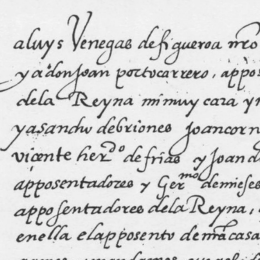 aluys Venegas de figueroa nr̃o
y a don Joan portocarrero, appos
dela Reyna mi muy cara y m
y a sandw de briones Joan corn
vicente her.º de frias y Joan d
apposentadores y Ger.mo de mieses
apposentadores dela Reyna,
en ella el apposento de mr̃a casa